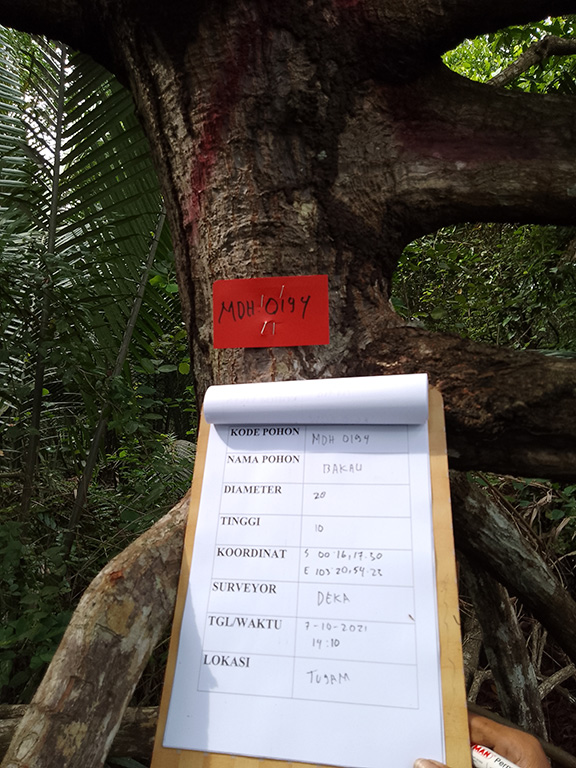 MDH 0194
KODE POHON MDH 0194
NAMA POHON BAKAU
DIAMETER 20
TINGGI 10
KOORDINAT S 00.16,17.30
E 103.20,54.23
SURVEYOR DEKA
TGL/WAKTU 7-10-2021
14:10
LOKASI TUGAM